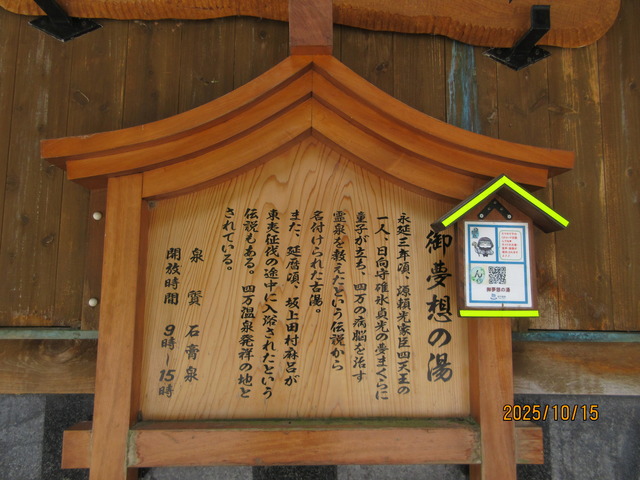 御夢想の湯
永延三年頃、源頼光家臣四天王の
一人、日向守碓氷貞光の夢まくらに
童子が立ち、四万の病脳を治す
霊泉を教えたという伝説から
名付けられた古湯。
また、延暦頃、坂上田村麻呂が
東夷征伐の途中に入浴されたという
伝説もある。四万温泉発祥の地と
されている。
泉質 石膏泉
開放時間 9時〜15時
ん
御夢想の湯
2025/10/15